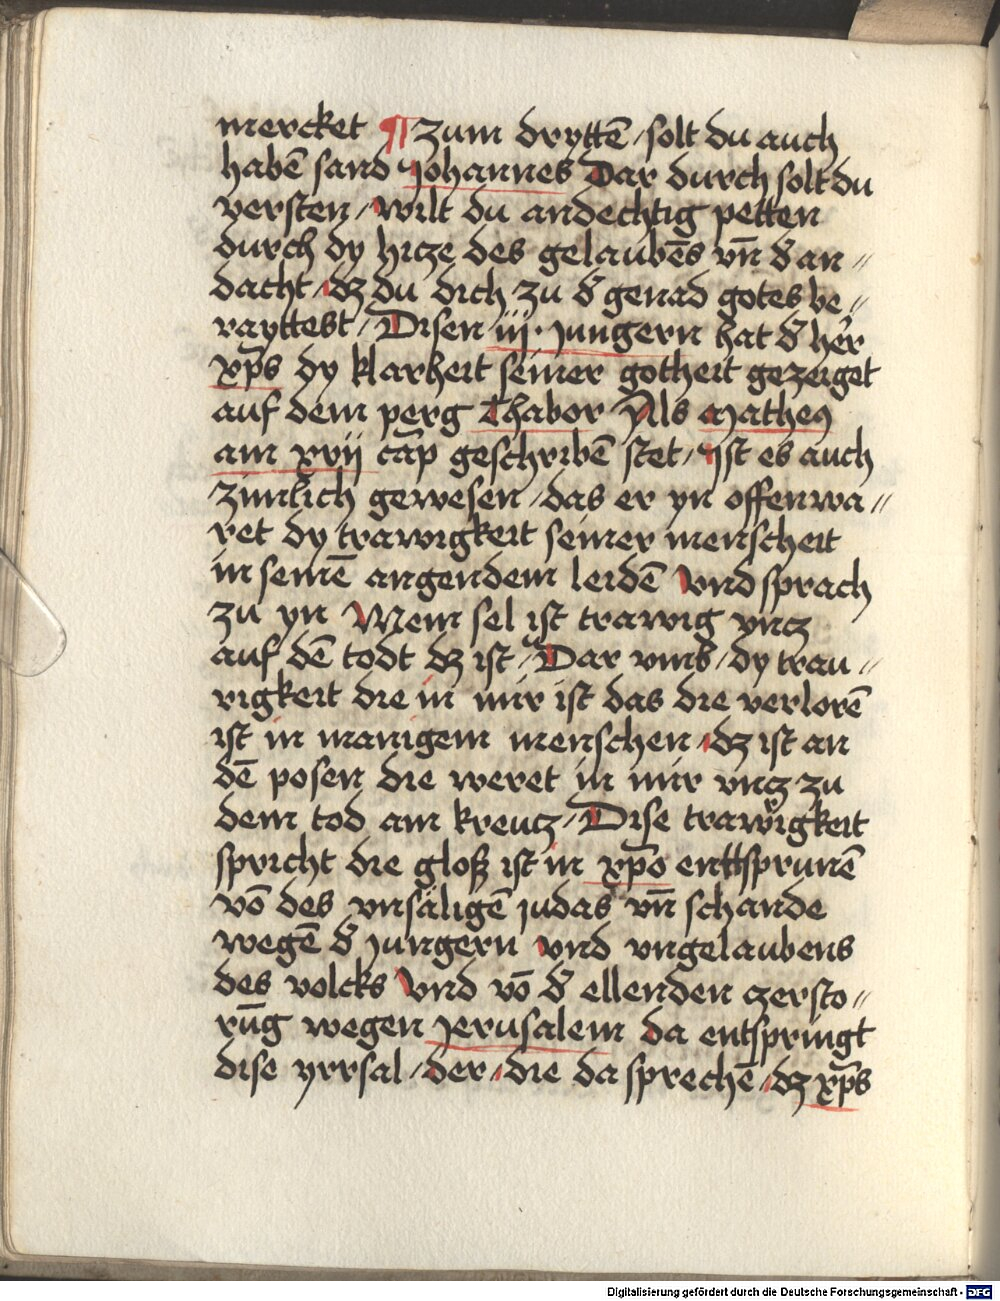 mercket ¶ Zum drytten̄ / solt du auch
habē sand Johannes Dar durch solt du
versten / wilt du andechtig petten
durch dy hicze des gelaubēs vn̄ đ an //
dacht / dz du dich zu đ genad gotes be //
rayttest / Disen iij · jungern hat đ her̄
xp̄s dy klarheit seiner gotheit gezeiget
auf dem perg Thabor / Als Matheꝰ
am xvij cap̄ geschribē stet / Ist es auch
zimlich gewesen / das er yn offenwa //
ret dy trawrigkeit seiner menscheit
in seinē angendem leidē Vnd sprach
zu yn Mein sel ist trawrig vncz
auf dē todt dz ist / Dar vmb / dy trau //
rigkeit die in mir ist das die verlorē
ist in manigem menschen / dz ist an
dē posen die weret in mir vncz zu
dem tod am kreucz / Dise trawrigkeit
spricht die gloß ist in xp̄o enttsprunē
vō des vnsäligē judas vn̄ schande
wegē đ jungern vnd vngelaubens
des volcks Vnd vō đ ellenden czersto //
rūg wegen Jerusalem da entspringt
dise yrrsal / der / die da sprechē / dz xp̄s
Digitalisierung gefördert durch die Deutsche Forschungsgemeinschaft - DFG